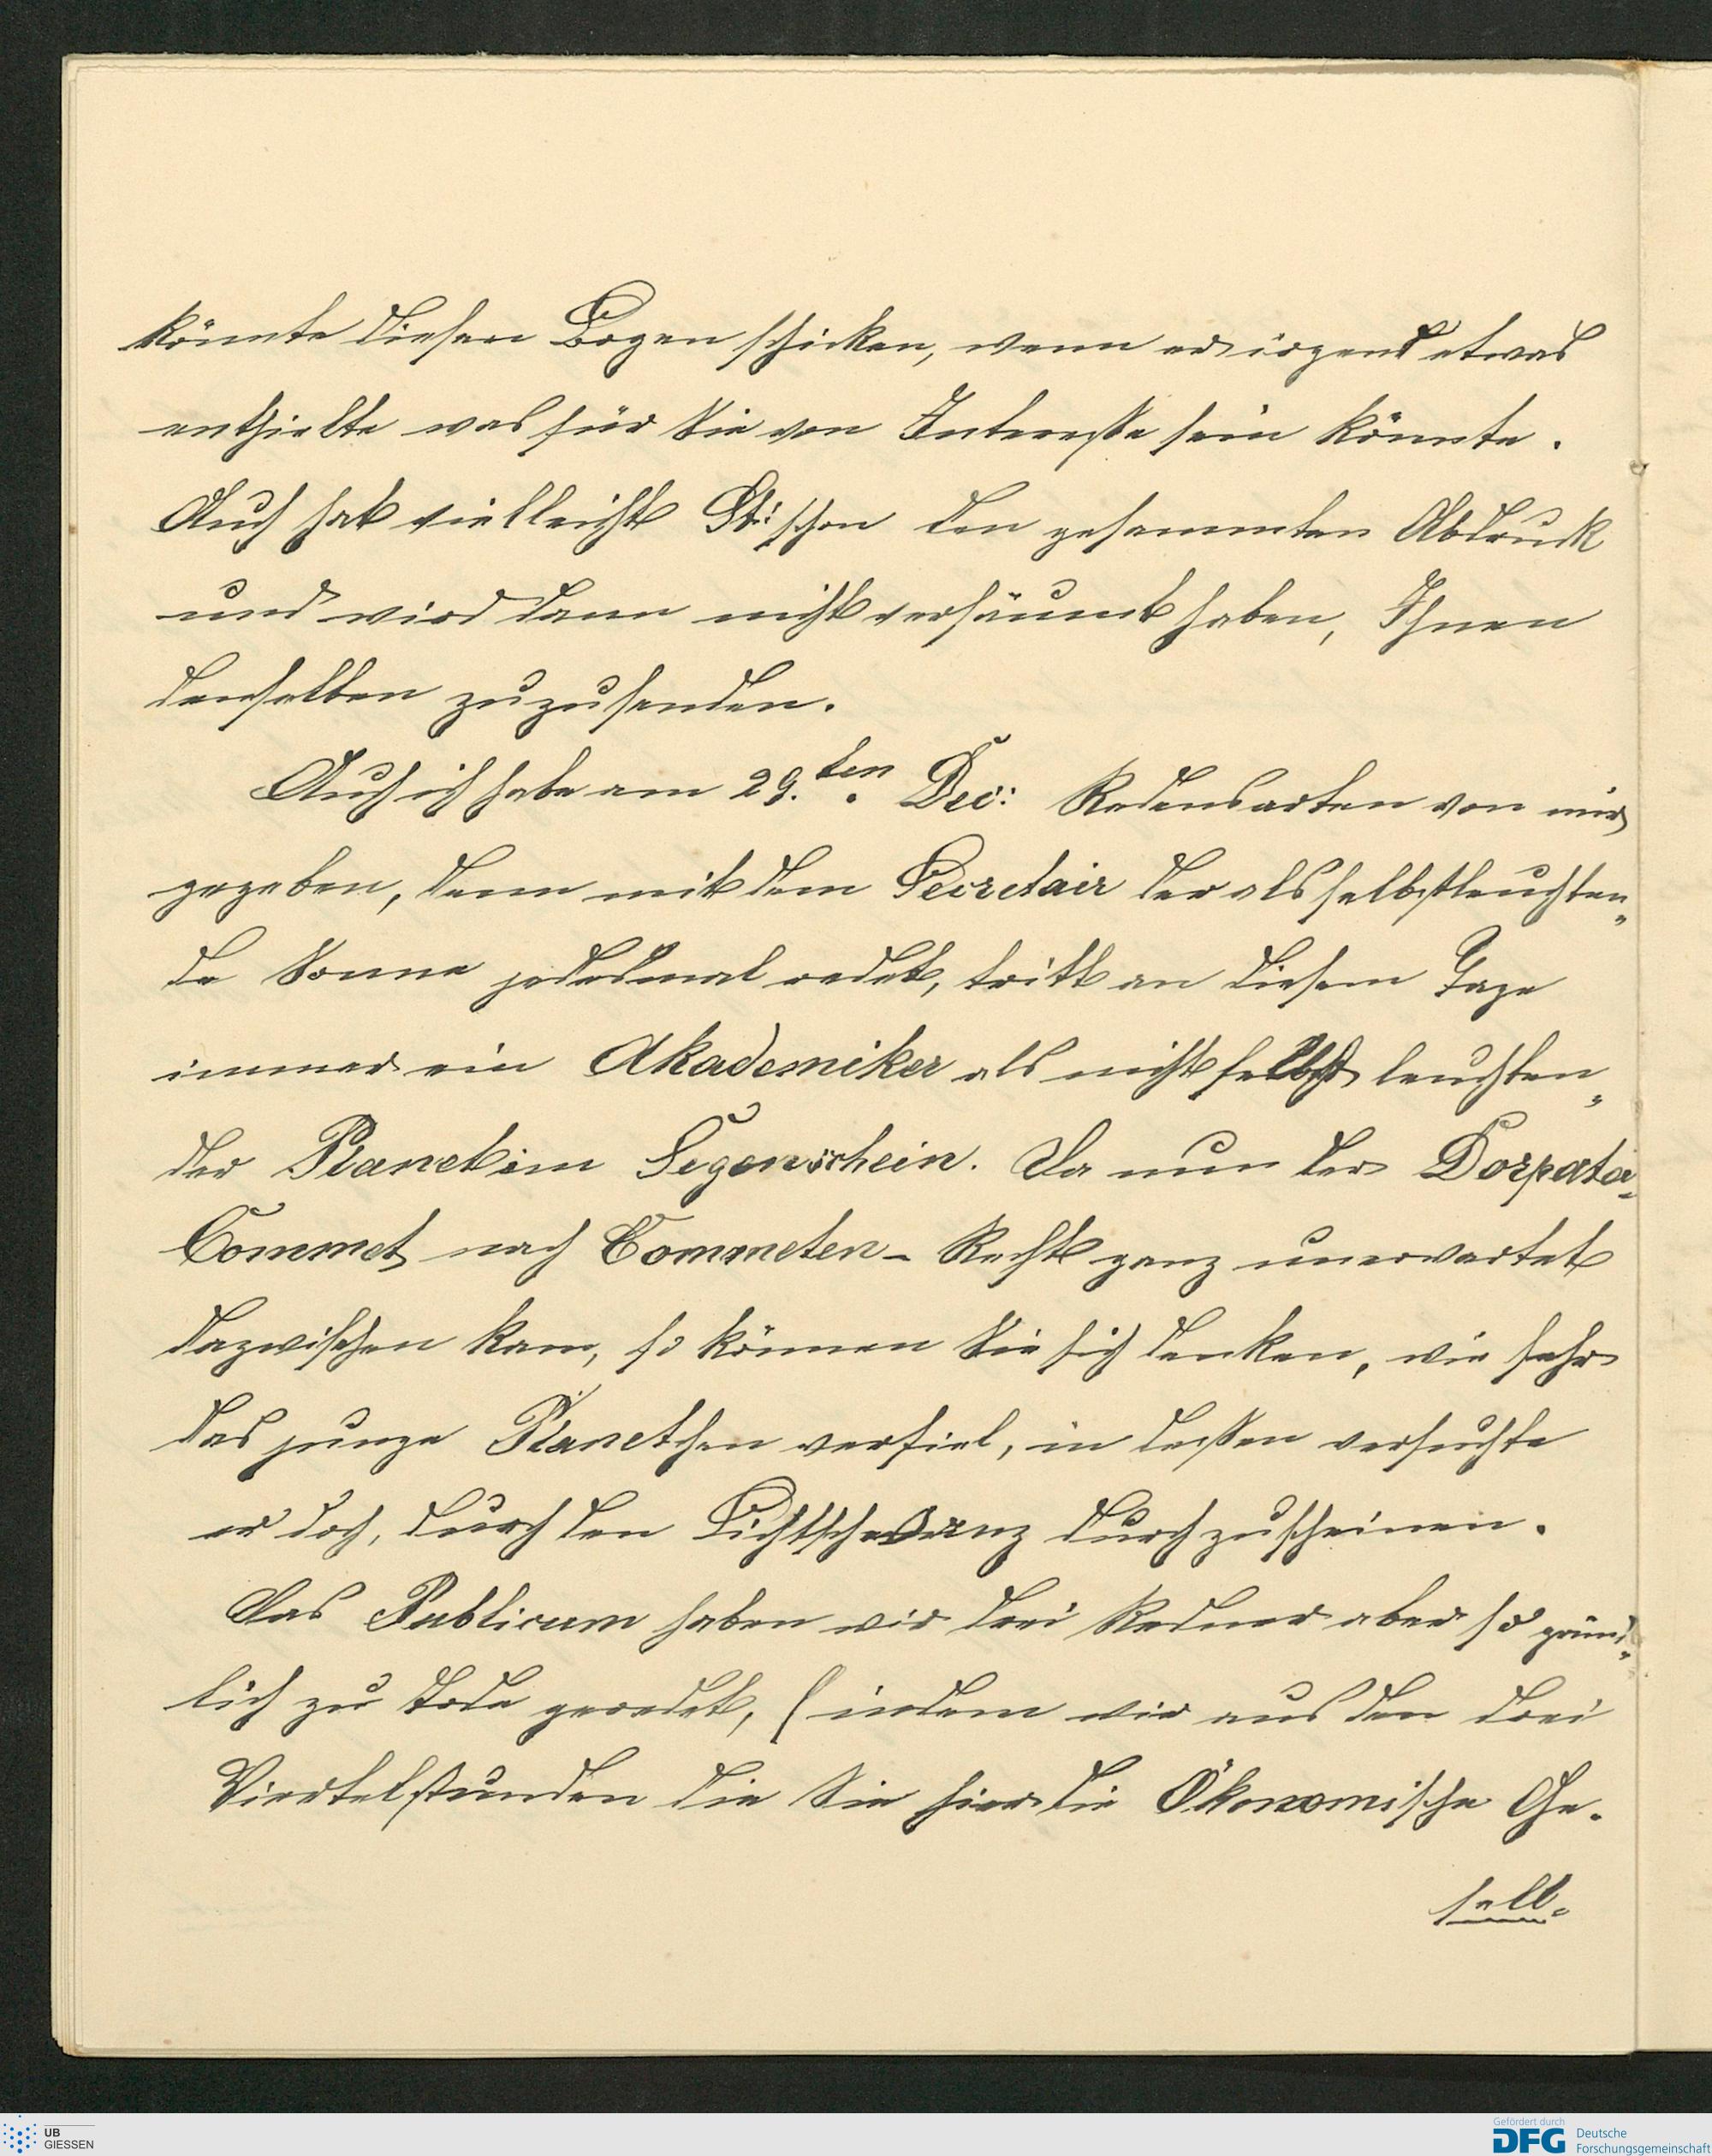 könnte diesen Bogen schicken, wenn er irgend etwas
enthielte was für Sie von Interesse sein könnte.
Auch hat vielleicht St: schon den gesammten Abdruck
und wird dann nicht versäumt haben, Ihnen
denselben zuzusenden.
Auch ich habe am 29.ten Dec: Redensarten von mir
gegeben, denn mit dem Secretair der als selbstleuchten„
de Sonne jedesmal redet, tritt an diesem Tage
immer ein Akademiker als nicht selbst leuchten„
der Planet im Gegenschein. Da nun der Dorpater
Commet nach Commeten-Recht ganz unerwartet
dazwischen kam, so können Sie sich denken, wie sehr
das junge Planetchen verfiel, in dessen versuchte
er doch, durch den Lichtschwanz durchzuscheinen.
Das Publicum haben wir drei Redner aber so gründ„
lich zu Tode geredet, (indem wir aus den drei
Viertelstunden die Sie hier die Ökonomische Ge-
sell-
UB
GIESSEN
Gefördert durch
DFG Deutsche
Forschungsgemeinschaft